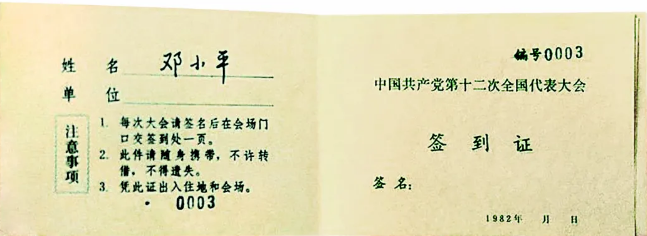 姓 名 邓小平
单 位
注意事项
1. 每次大会请签名后在会场门
口交签到处一页。
2. 此件请随身携带，不许转
借，不得遗失。
3. 凭此证出入住地和会场。
0003
编号0003
中国共产党第十二次全国代表大会
签 到 证
签名：
1982年 月 日